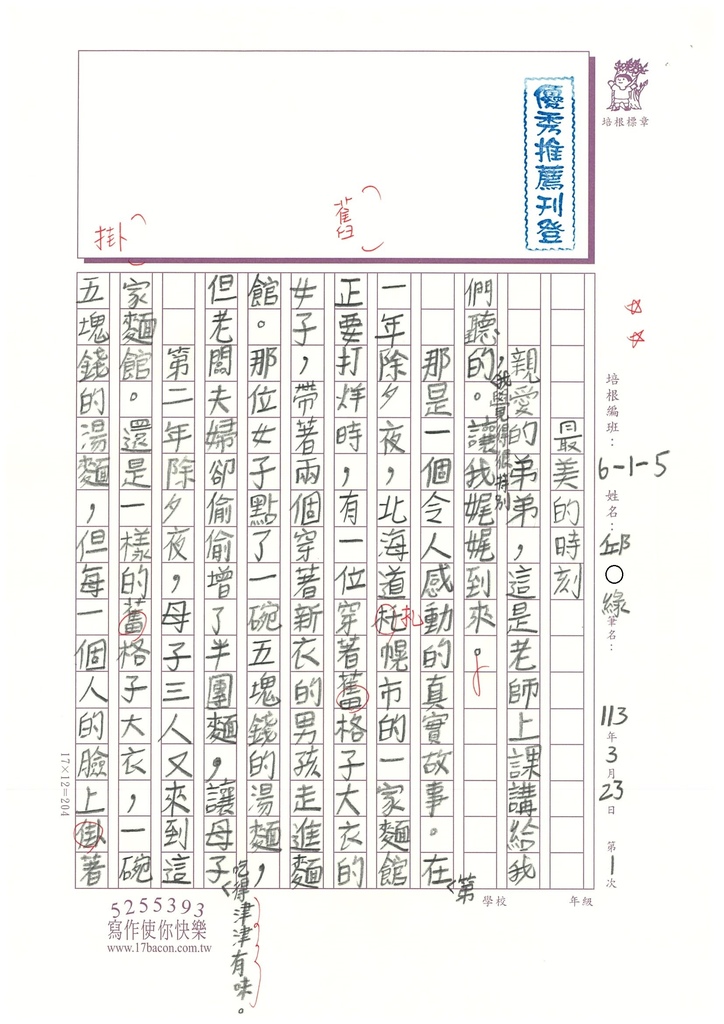 優秀推薦刊登
培根標章
培根編班：6-1-5 姓名：邱○緣 筆名：
113年3月23日 第1次
學校 年級
最美的時刻
親愛的弟弟，這是老師上課講給我
們聽的，我覺得很特別。讓我娓娓到來。
那是一個令人感動的真實故事。在第
一年除夕夜，北海道札幌市的一家麵館
正要打烊時，有一位穿著舊格子大衣的
女子，帶著兩個穿著新衣的男孩走進麵
館。那位女子點了一碗五塊錢的湯麵，
但老闆夫婦卻偷偷增了半團麵，讓母子吃得津津有味。
第二年除夕夜，母子三人又來到這
家麵館。還是一樣的舊格子大衣，一碗
五塊錢的湯麵，但每一個人的臉上掛著
舊
掛
札
17×12=204
5255393
寫作使你快樂
www.17bacon.com.tw